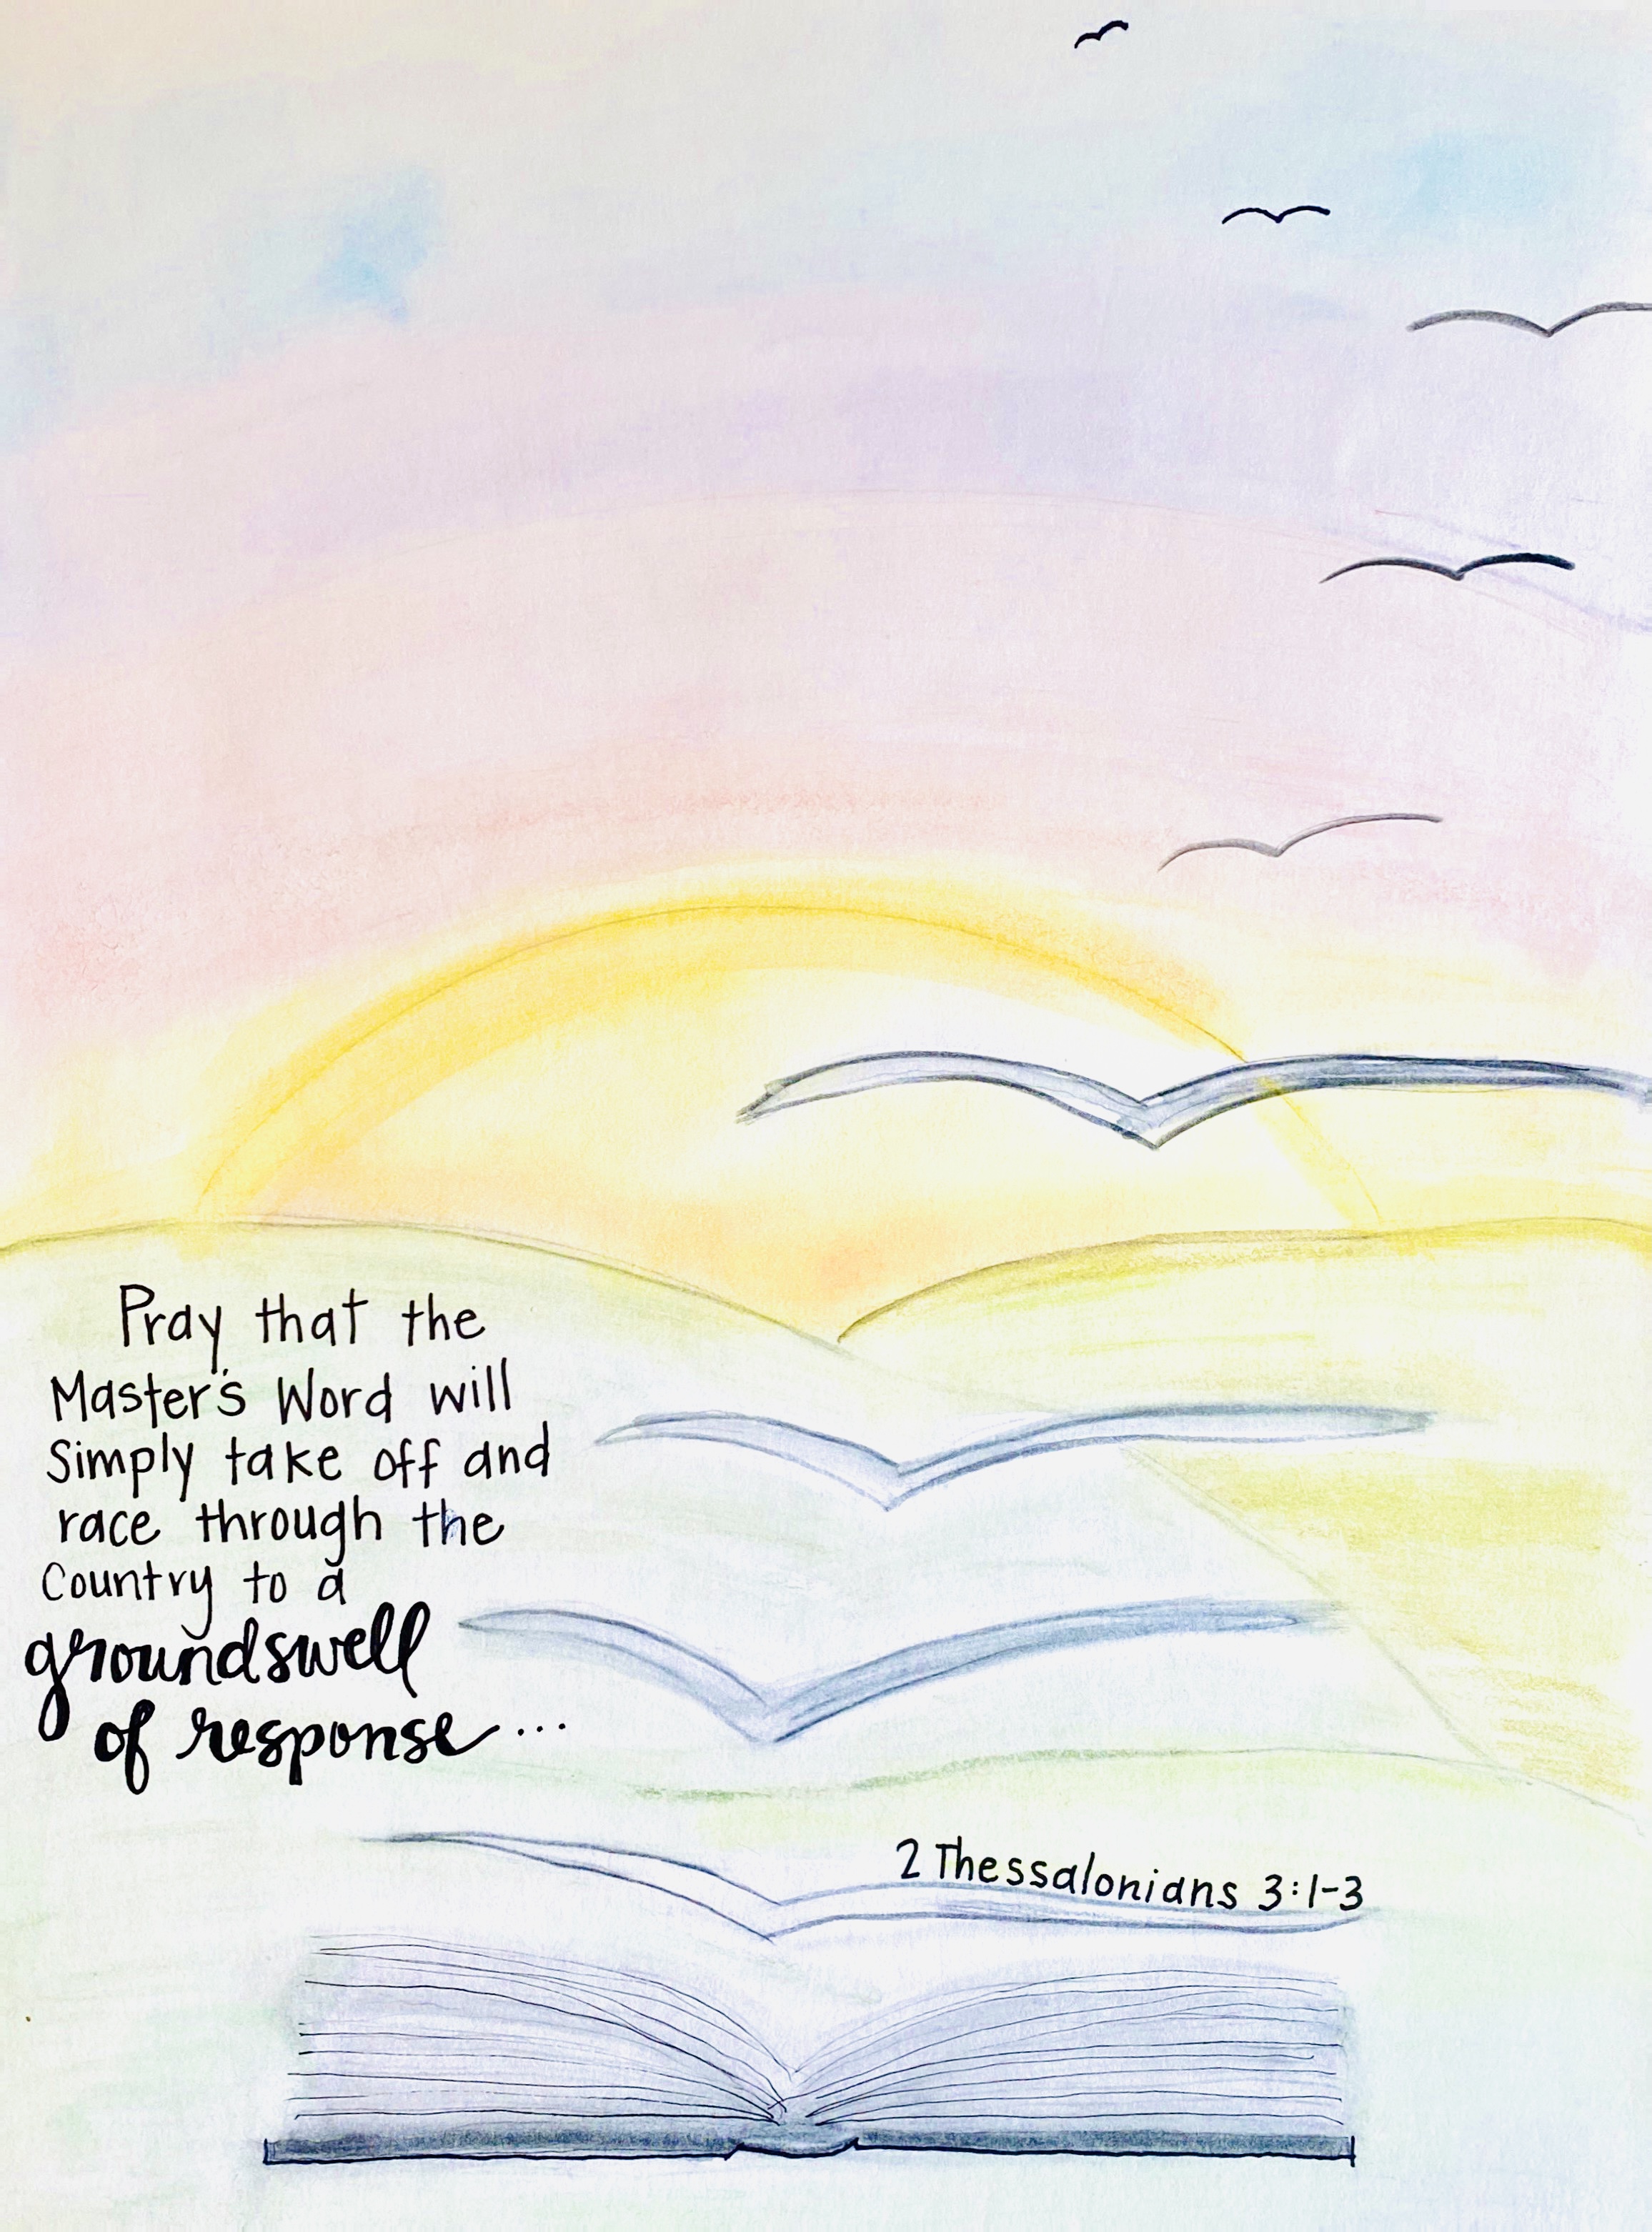 Pray that the
Master's Word will
Simply take off and
race through the
Country to a
groundswell
of response...
2 Thessalonians 3:1-3